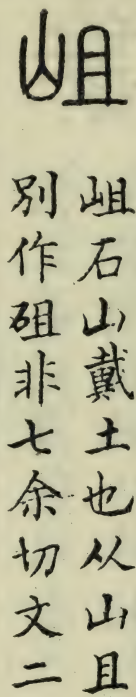 岨
岨石山戴土也从山且
別作砠非七余切文二